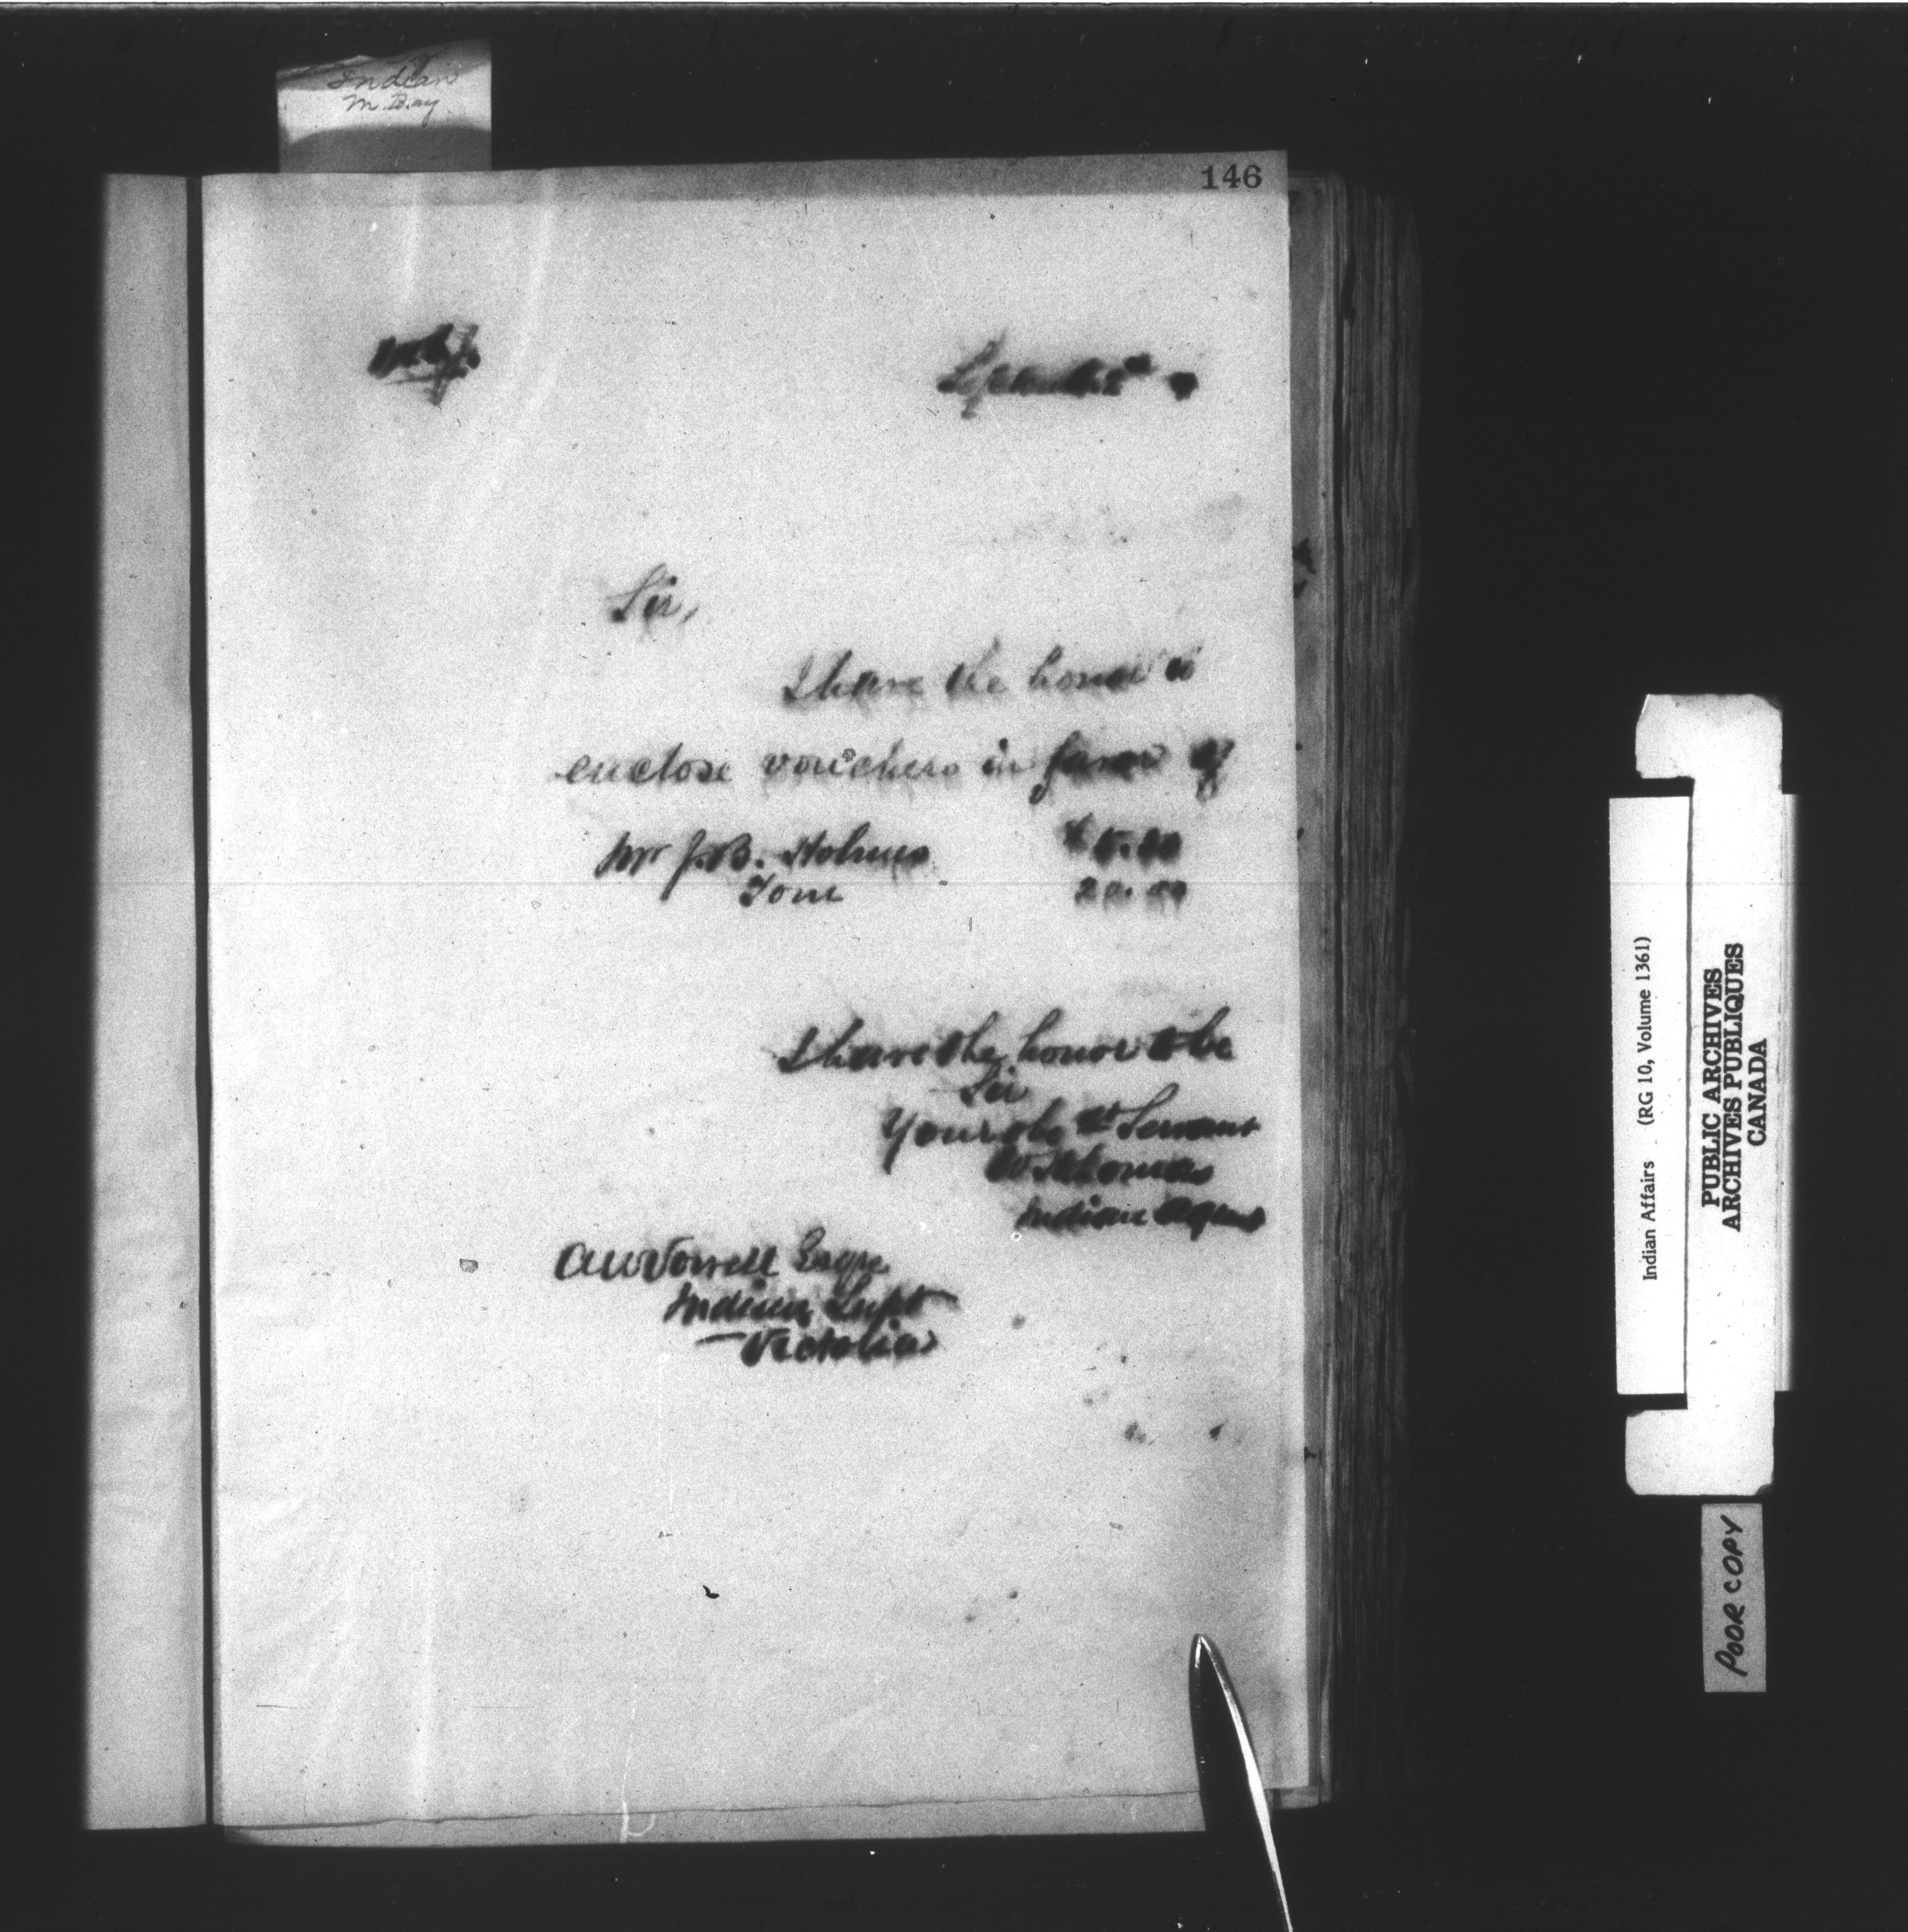 Indian
146
Sir,
I have the honor to
enclose vouchers in favor of
Mr J.B. Holmes
Tom 20.00
I have the honor to be
Sir
Your obt Servant
Indian Agent
A W Vowell Esqre
Indian Supt
Victoria
Indian Affairs (RG 10, Volume 1361)
PUBLIC ARCHIVES
ARCHIVES PUBLIQUES
CANADA
POOR COPY